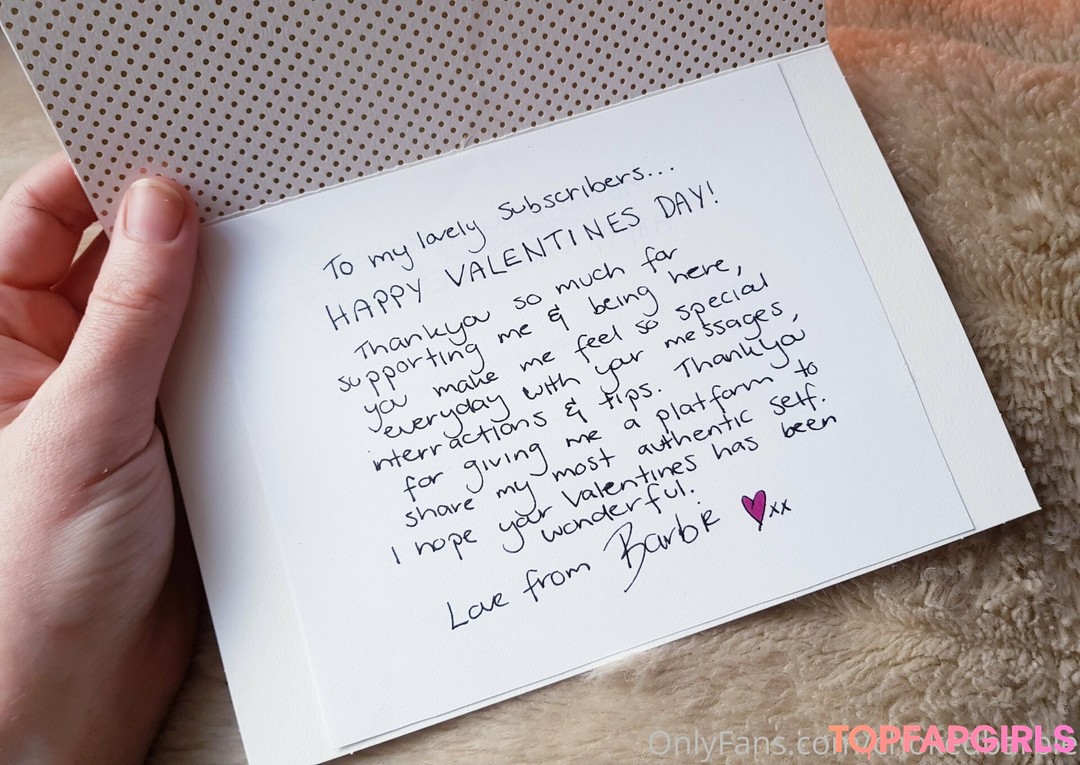 To my lovely subscribers...
HAPPY VALENTINES DAY!
Thankyou so much for
supporting me & being here,
you make me feel so special
everyday with your messages,
interractions & tips. Thankyou
for giving me a platform to
share my most authentic self.
I hope your Valentines has been
wonderful.
Love from Barbie xx
OnlyFans.com
TOPFAPGIRLS